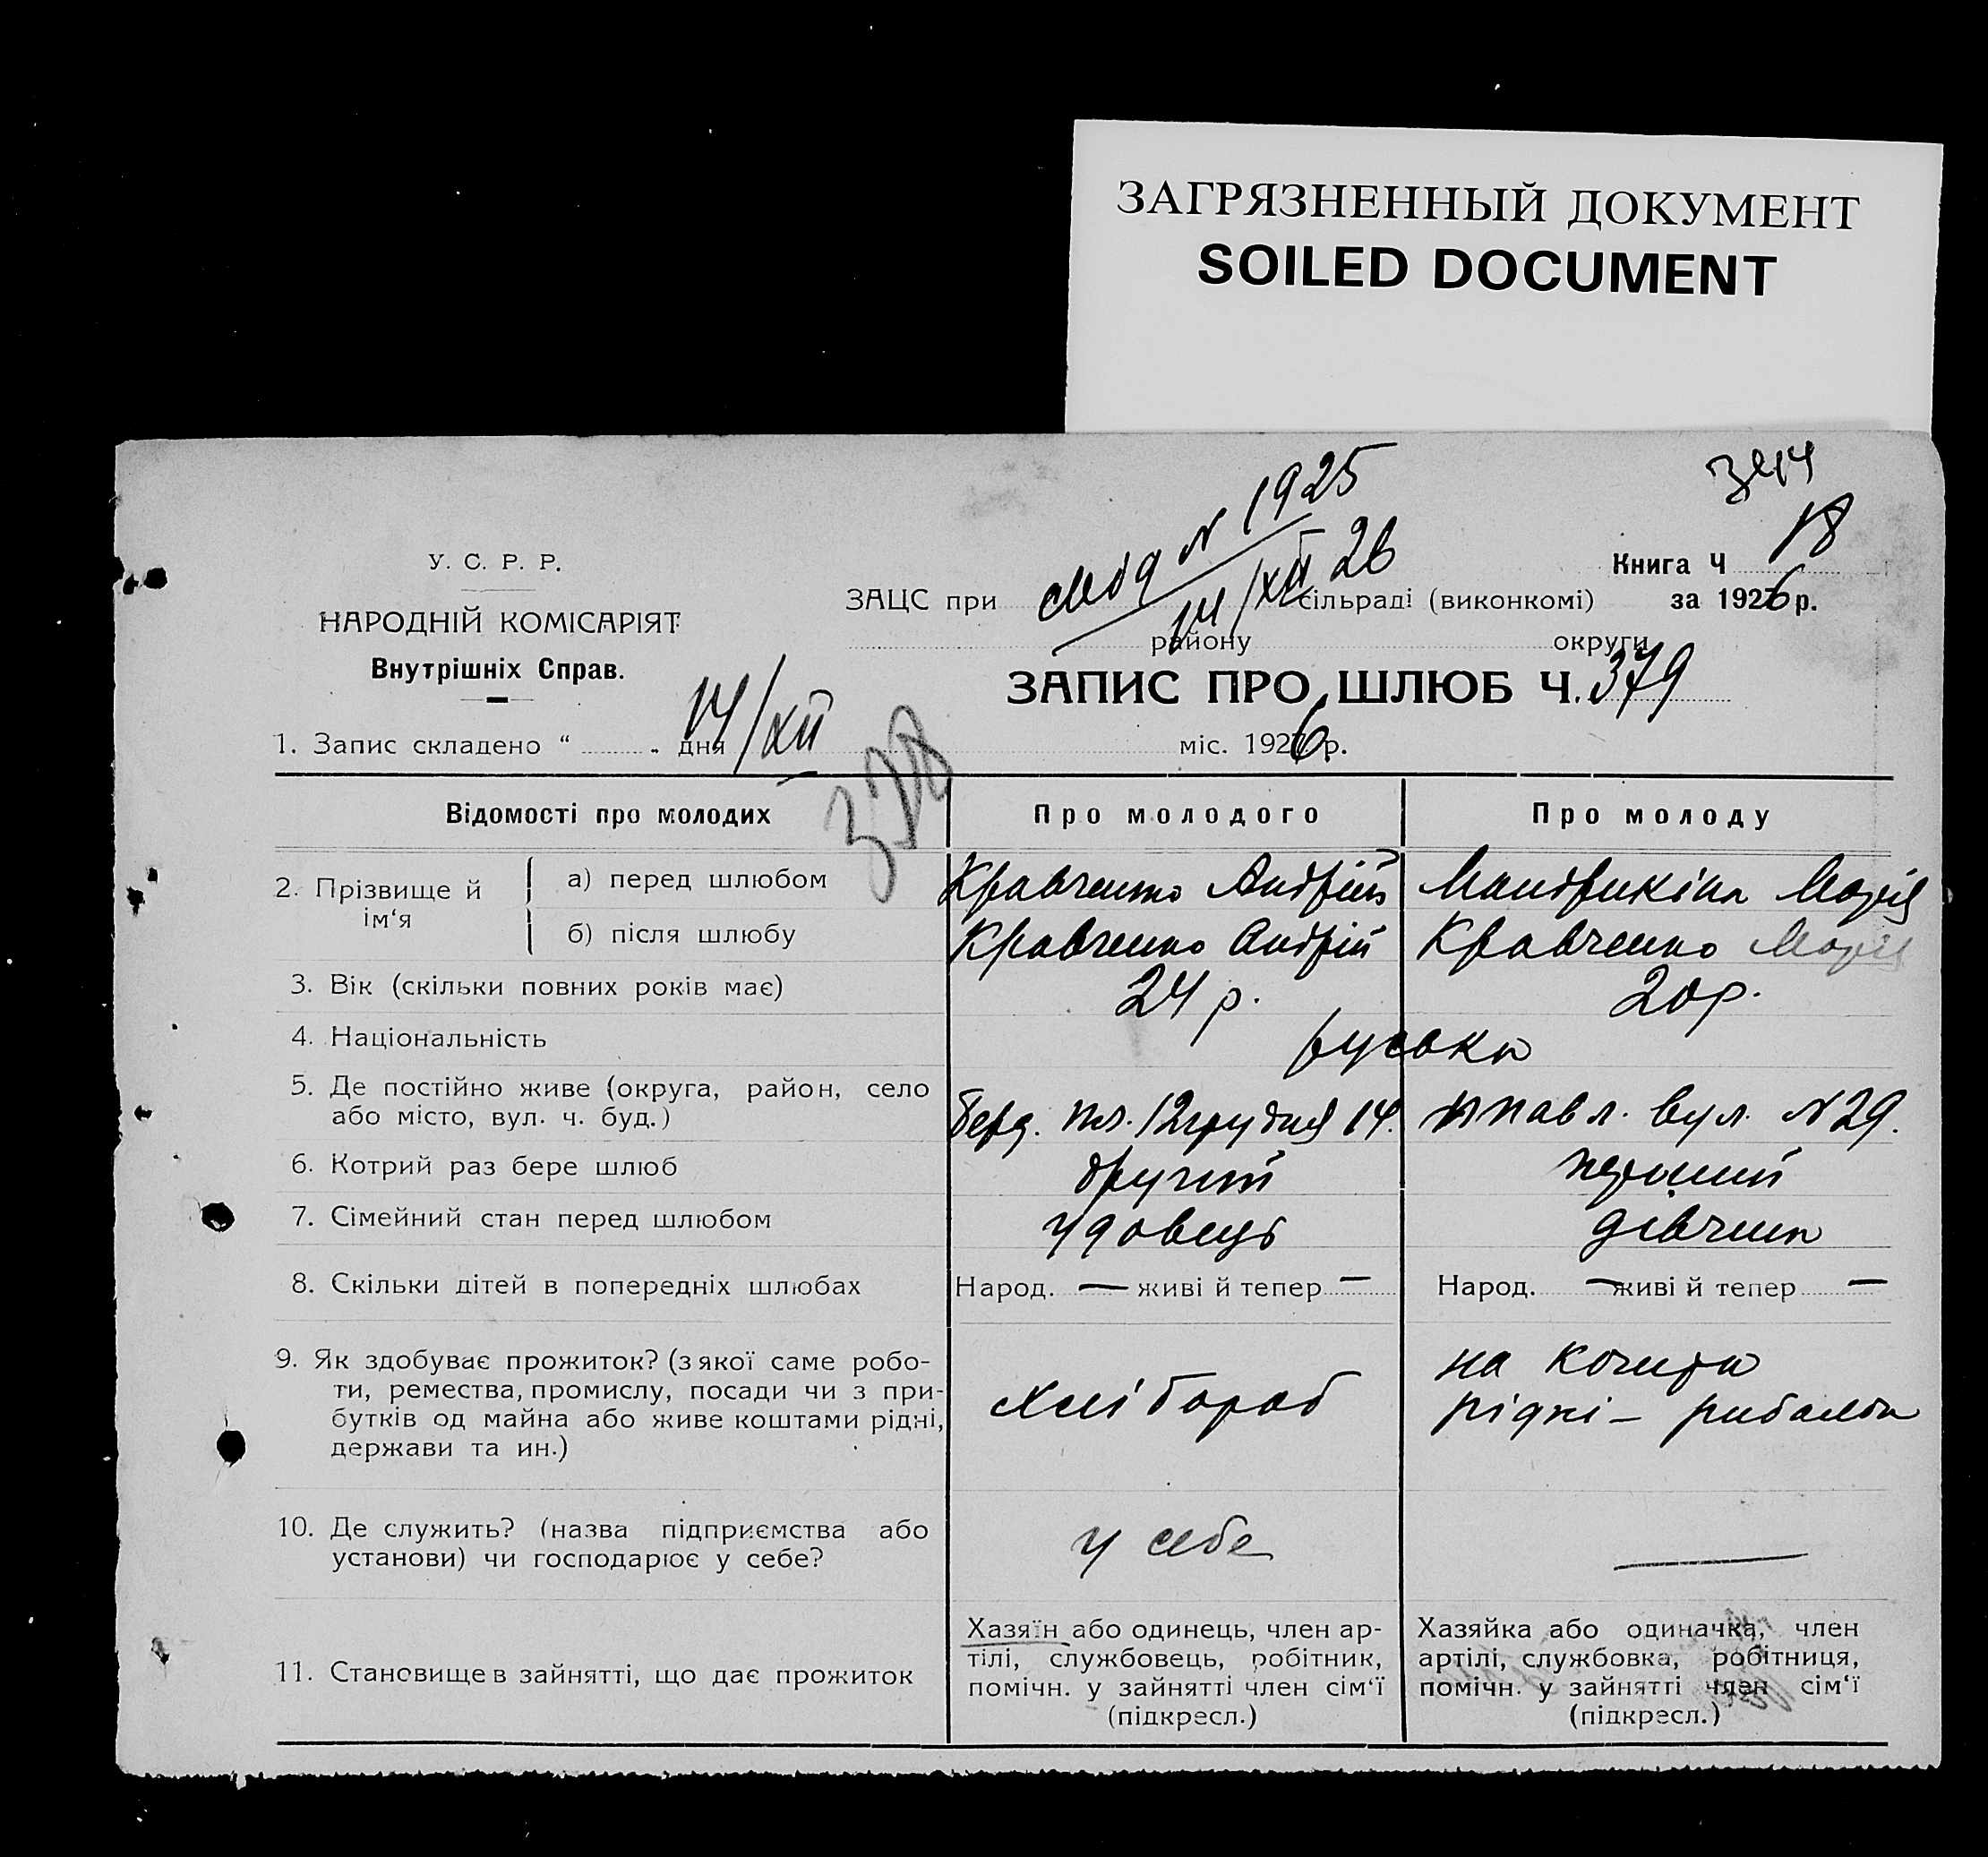 ЗАГРЯЗНЕННЫЙ ДОКУМЕНТ
SOILED DOCUMENT
18
У. С. Р. Р.
НАРОДНІЙ КОМІСАРІЯТ
Внутрішніх Справ.
N 1925
14/XII 26
ЗАЦС при сільраді (виконкомі)
району округи
Книга Ч
за 1926 р.
ЗАПИС ПРО ШЛЮБ Ч. 379
1. Запис складено “ - дня 14/XII міс. 1926 р.
378
Відомості про молодих Про молодого Про молоду
2. Прізвище й ім‘я
а) перед шлюбом Кравченко Андрій Мандрикіна Марія
б) після шлюбу Кравченко Андрій Кравченко Марія
3. Вік (скільки повних років має) 24 р. 20 р.
4. Національність руська
5. Де постійно живе (округа, район, село
або місто, вул. ч. буд.) Берд. пл. 12 грудня 14. павл. вул. N 29.
6. Котрий раз бере шлюб другий перший
7. Сімейний стан перед шлюбом удовець дівчина
8. Скільки дітей в попередніх шлюбах Народ. — живі й тепер — Народ. — живі й тепер —
9. Як здобуває прожиток? (з якої саме робо-
ти, ремества, промислу, посади чи з при-
бутків од майна або живе коштами рідні,
держави та ин.)
хлібороб
на кошти
рідні —
10. Де служить? (назва підприємства або
установи) чи господарює у себе?
у себе —
11. Становище в зайнятті, що дає прожиток
Хазяїн або одинець, член ар-
тілі, службовець, робітник,
помічн. у зайнятті член сім‘ї
(підкресл.)
Хазяйка або одиначка, член
артілі, службовка, робітниця,
помічн. у зайнятті член сім‘ї
(підкресл.)